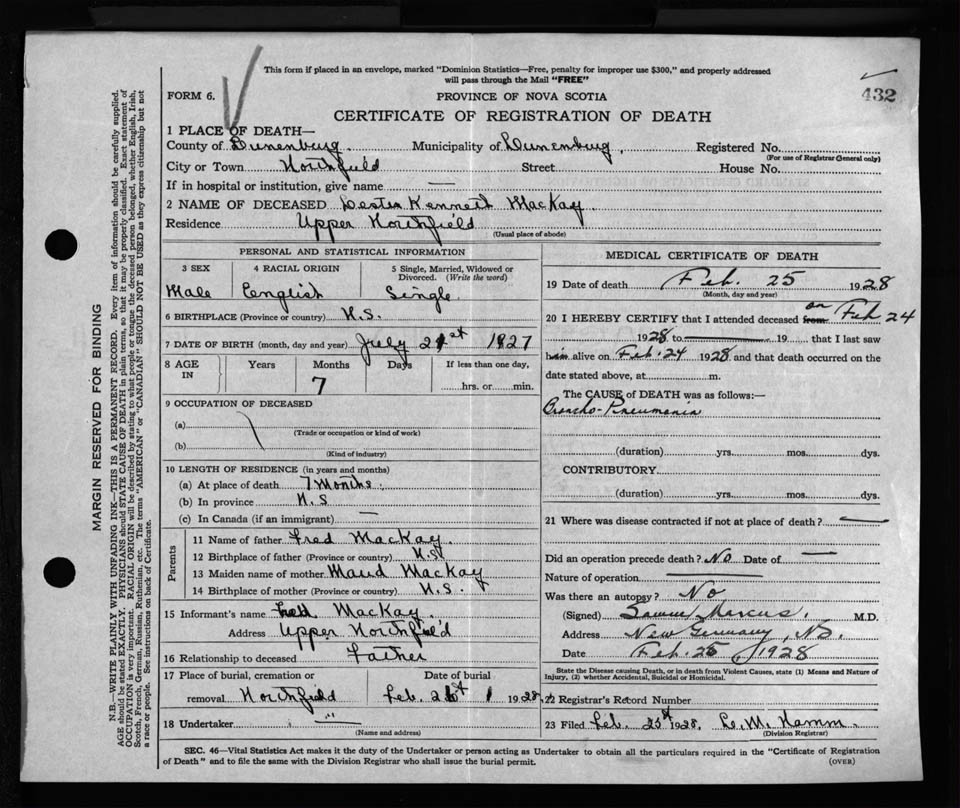 This form if placed in an envelope, marked "Dominion Statistics—Free, penalty for improper use $300," and properly addressed
will pass through the Mail "FREE"
432
FORM 6.
PROVINCE OF NOVA SCOTIA
CERTIFICATE OF REGISTRATION OF DEATH
1 PLACE OF DEATH—
County of Lunenburg. Municipality of Lunenburg, Registered No.
(For use of Registrar General only)
City or Town Northfield Street House No.
If in hospital or institution, give name —
2 NAME OF DECEASED Lester Kennett MacKay.
Residence Upper Northfield
(Usual place of abode)
PERSONAL AND STATISTICAL INFORMATION
3 SEX 4 RACIAL ORIGIN 5 Single, Married, Widowed or Divorced. (Write the word)
Male English Single
6 BIRTHPLACE (Province or country) N.S.
7 DATE OF BIRTH (month, day and year) July 21st 1927
8 AGE IN Years Months Days If less than one day,
7 hrs. or min.
9 OCCUPATION OF DECEASED
(a)
(Trade or occupation or kind of work)
(b)
(Kind of industry)
10 LENGTH OF RESIDENCE (in years and months)
(a) At place of death 7 Months.
(b) In province N.S
(c) In Canada (if an immigrant) —
Parents
11 Name of father Fred MacKay.
12 Birthplace of father (Province or country) N.S
13 Maiden name of mother Maud MacKay
14 Birthplace of mother (Province or country) N.S.
15 Informant's name Fred MacKay.
Address Upper Northfie'd
16 Relationship to deceased Father
17 Place of burial, cremation or Date of burial
removal Northfield Feb. 1928.
18 Undertaker "—"
(Name and address)
MEDICAL CERTIFICATE OF DEATH
19 Date of death Feb. 25 1928
(Month, day and year)
20 I HEREBY CERTIFY that I attended deceased from on Feb 24
1928 to 19 that I last saw
him alive on Feb. 24 1928 and that death occurred on the
date stated above, at m.
The CAUSE OF DEATH was as follows:—
Broncho-Pneumonia
(duration) yrs. mos. dys.
CONTRIBUTORY
(duration) yrs. mos. dys.
21 Where was disease contracted if not at place of death? —
Did an operation precede death? No Date of —
Nature of operation —
Was there an autopsy? No
(Signed) Samuel Marcus, M.D.
Address New Germany, N.S.
Date Feb. 25, 1928
State the Disease causing Death, or in death from Violent Causes, state (1) Means and Nature of Injury, (2) whether Accidental, Suicidal or Homicidal.
22 Registrar's Record Number
23 Filed Feb. 25th 1928. L. M. Hamm
(Division Registrar)
SEC. 46—Vital Statistics Act makes it the duty of the Undertaker or person acting as Undertaker to obtain all the particulars required in the "Certificate of Registration
of Death" and to file the same with the Division Registrar who shall issue the burial permit.
(OVER)
MARGIN RESERVED FOR BINDING
N.B.—WRITE PLAINLY WITH UNFADING INK—THIS IS A PERMANENT RECORD. Every item of information should be carefully supplied.
AGE should be stated EXACTLY. PHYSICIANS should STATE CAUSE OF DEATH in plain terms, so that it may be properly classified. Exact statement of
OCCUPATION is very important. RACIAL ORIGIN will be described by stating to what people or tongue the deceased person belonged, whether English, Irish,
Scotch, French, German, Russian, Ruthenian, etc. The terms "AMERICAN" or "CANADIAN" SHOULD NOT BE USED as they express citizenship but not
a race or people. See instructions on back of Certificate.